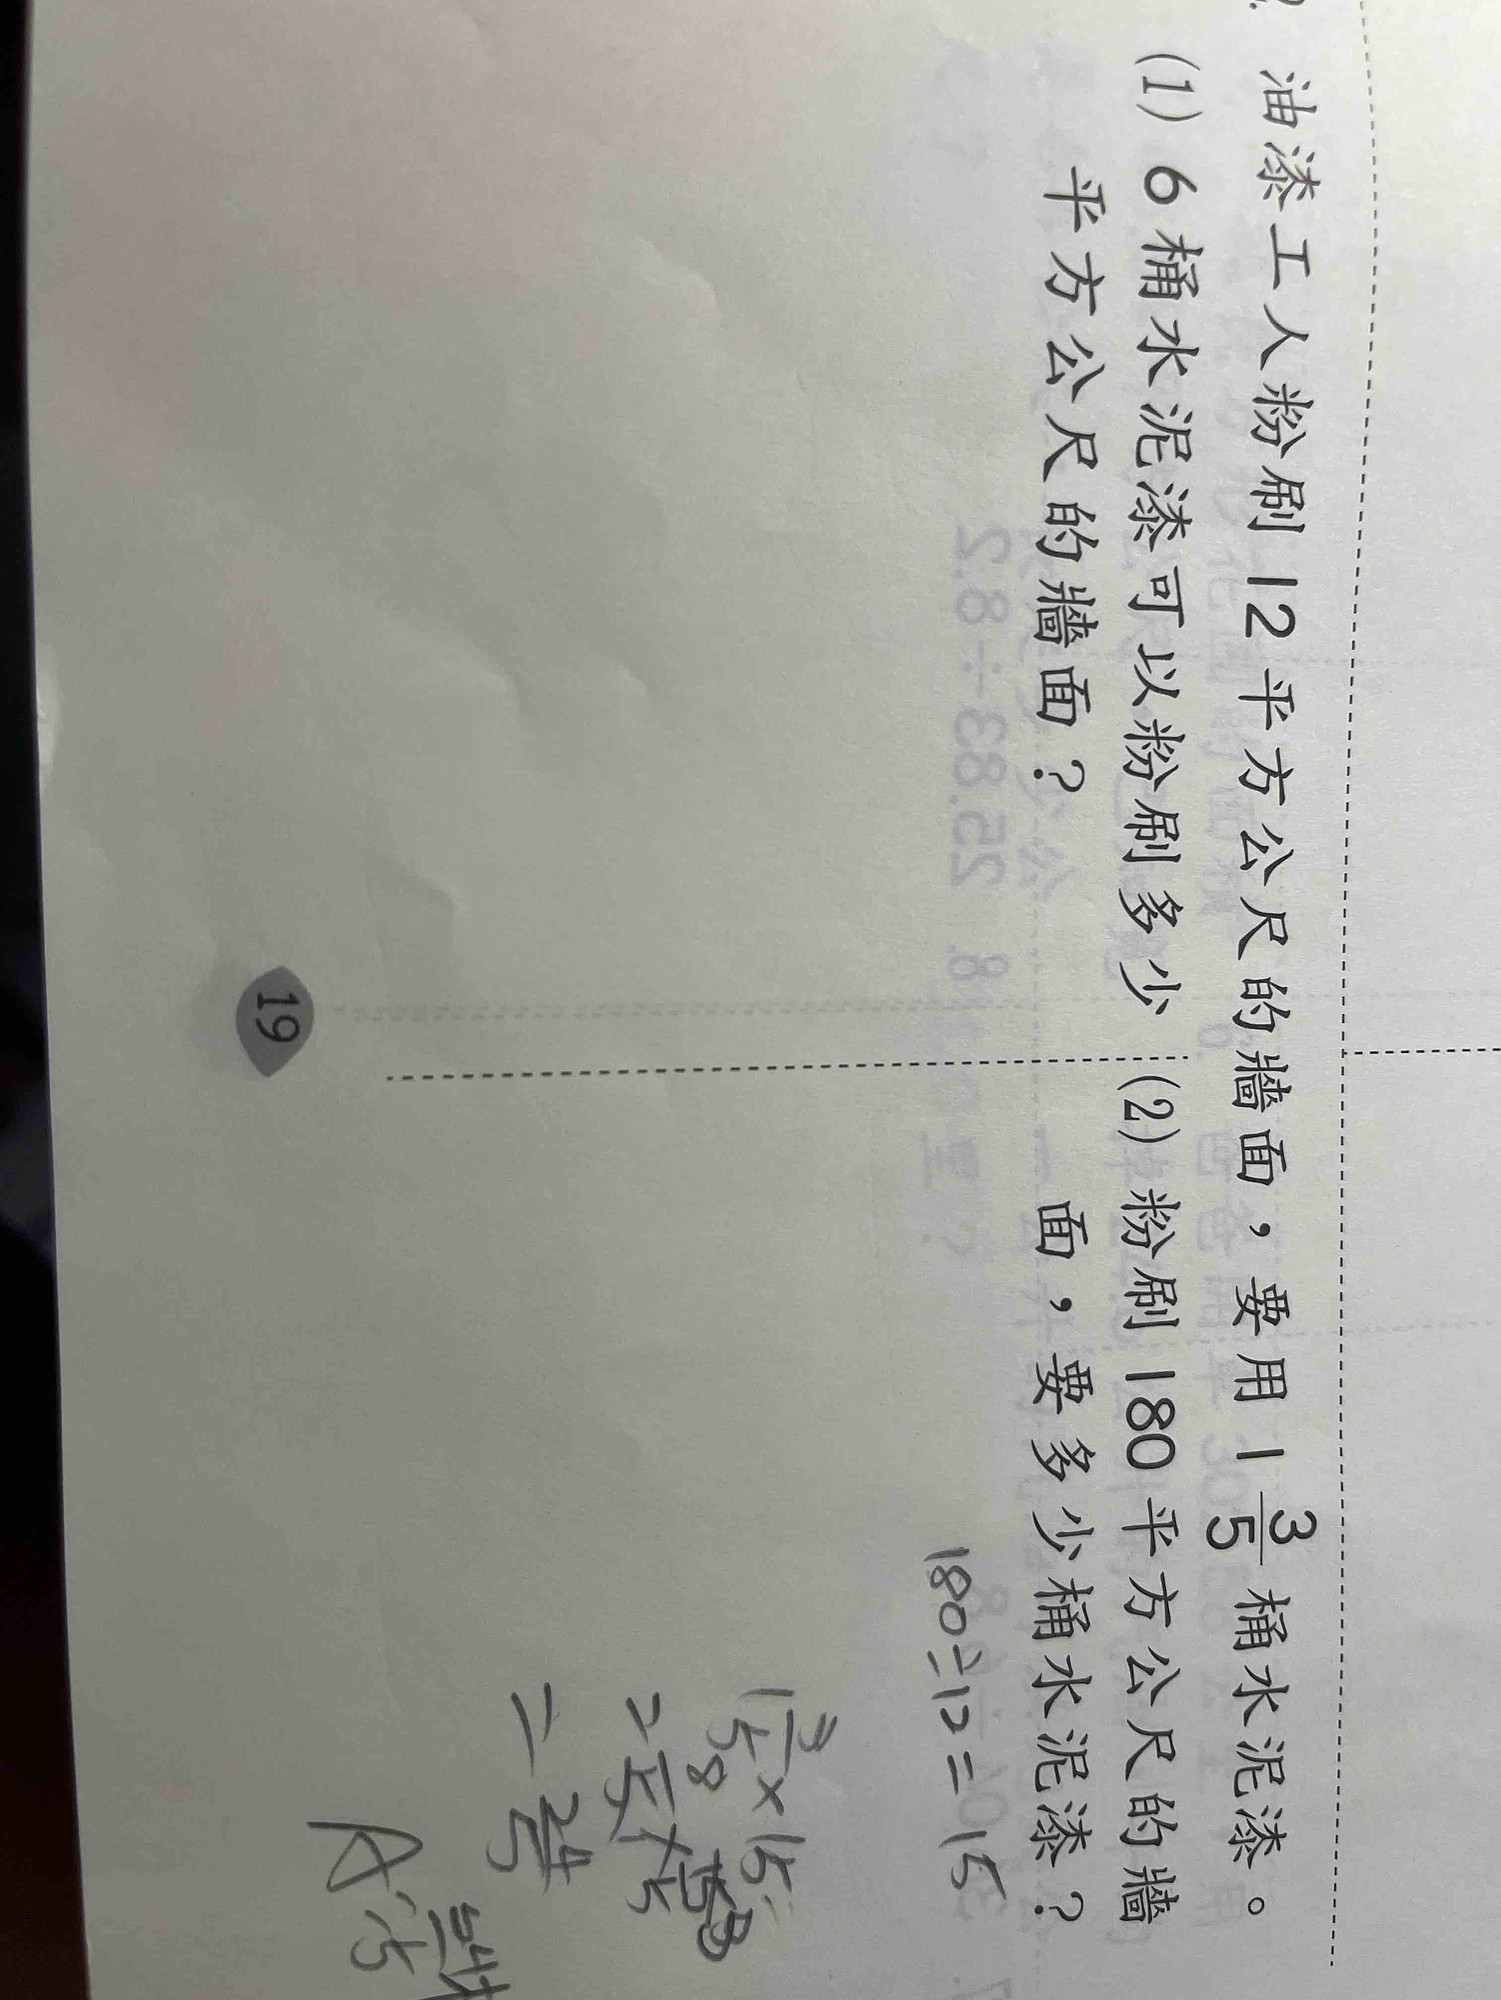 油漆工人粉刷12平方公尺的牆面，要用1 3/5 桶水泥漆。
(1) 6桶水泥漆可以粉刷多少
平方公尺的牆面？
(2) 粉刷180平方公尺的牆
面，要多少桶水泥漆？
180÷12=15
1 3/5 × 15
19